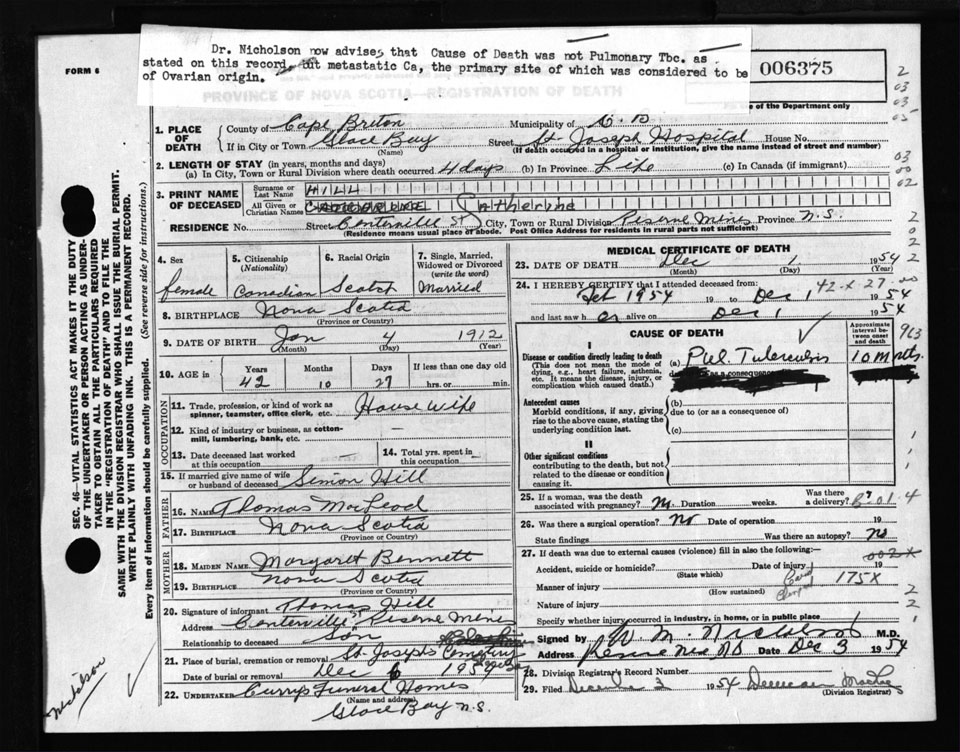 Dr. Nicholson now advises that Cause of Death was not Pulmonary Tbc. as
stated on this record, but metastatic Ca, the primary site of which was considered to be
of Ovarian origin.
FORM 6
006375
PROVINCE OF NOVA SCOTIA—REGISTRATION OF DEATH
e of the Department only
1. PLACE OF DEATH
County of Cape Breton Municipality of C. B.
If in City or Town Glace Bay Street St. Joseph Hospital House No.
(Name) (If death occurred in a hospital or institution, give the name instead of street and number)
2. LENGTH OF STAY (in years, months and days)
(a) In City, Town or Rural Division where death occurred 4 days (b) In Province Life (c) In Canada (if immigrant)
3. PRINT NAME OF DECEASED
Surname or Last Name HILL
All Given or Christian Names Catherine
RESIDENCE No. Street Centerville St City, Town or Rural Division Reserve Mines Province N.S.
(Residence means usual place of abode. Post Office Address for residents in rural parts not sufficient)
4. Sex
female
5. Citizenship
(Nationality)
Canadian
6. Racial Origin
Scotch
7. Single, Married, Widowed or Divorced
(write the word)
Married
8. BIRTHPLACE Nova Scotia
(Province or Country)
9. DATE OF BIRTH Jan 4 1912
(Month) (Day) (Year)
10. AGE in Years Months Days If less than one day old
42 10 27 hrs. or min.
OCCUPATION
11. Trade, profession, or kind of work as
spinner, teamster, office clerk, etc. House wife
12. Kind of industry or business, as cotton-
mill, lumbering, bank, etc.
13. Date deceased last worked
at this occupation
14. Total yrs. spent in
this occupation
15. If married give name of wife
or husband of deceased Simon Hill
FATHER
16. NAME Thomas MacLeod
17. BIRTHPLACE Nova Scotia
(Province or Country)
MOTHER
18. MAIDEN NAME Margaret Bennett
19. BIRTHPLACE Nova Scotia
(Province or Country)
20. Signature of informant Thomas Hill
Address Centerville St Reserve Mines
Relationship to deceased Son
21. Place of burial, cremation or removal St. Josephs Cemetery
Date of burial or removal Dec 6 1954
22. UNDERTAKER Currys Funeral Homes
(Name and address)
Glace Bay N.S.
MEDICAL CERTIFICATE OF DEATH
23. DATE OF DEATH Dec 1 1954
(Month) (Day) (Year)
24. I HEREBY CERTIFY that I attended deceased from:
Feb 1954 19 to Dec 1 1954
and last saw h er alive on Dec 1 1954
42-X 27
CAUSE OF DEATH
Approximate interval between onset and death
963
I
Disease or condition directly leading to death
(This does not mean the mode of
dying, e.g., heart failure, asthenia,
etc. It means the disease, injury, or
complication which caused death.)
(a) Pul. Tuberculosis 10 mnths.
Antecedent causes
Morbid conditions, if any, giving
rise to the above cause, stating the
underlying condition last.
(b)
due to (or as a consequence of)
(c)
II
Other significant conditions
contributing to the death, but not
related to the disease or condition
causing it.
25. If a woman, was the death
associated with pregnancy? No Duration weeks. Was there a delivery?
26. Was there a surgical operation? No Date of operation 19
State findings Was there an autopsy? No
27. If death was due to external causes (violence) fill in also the following:—
002X
Accident, suicide or homicide? Date of injury 19
(State which)
Manner of injury 175X
(How sustained)
Nature of injury
Specify whether injury occurred in industry, in home, or in public place
Signed by W. M. Nicholson M.D.
Address Reserve Mines NS Date Dec 3 1954
28. Division Registrar's Record Number
29. Filed December 3 1954
(Division Registrar)
SEC. 46—VITAL STATISTICS ACT MAKES IT THE DUTY
OF THE UNDERTAKER OR PERSON ACTING AS UNDER-
TAKER TO OBTAIN ALL THE PARTICULARS REQUIRED
IN THE "REGISTRATION OF DEATH" AND TO FILE THE
SAME WITH THE DIVISION REGISTRAR WHO SHALL ISSUE THE BURIAL PERMIT.
WRITE PLAINLY WITH UNFADING INK. THIS IS A PERMANENT RECORD.
Every item of information should be carefully supplied. (See reverse side for instructions.)
Nicholson